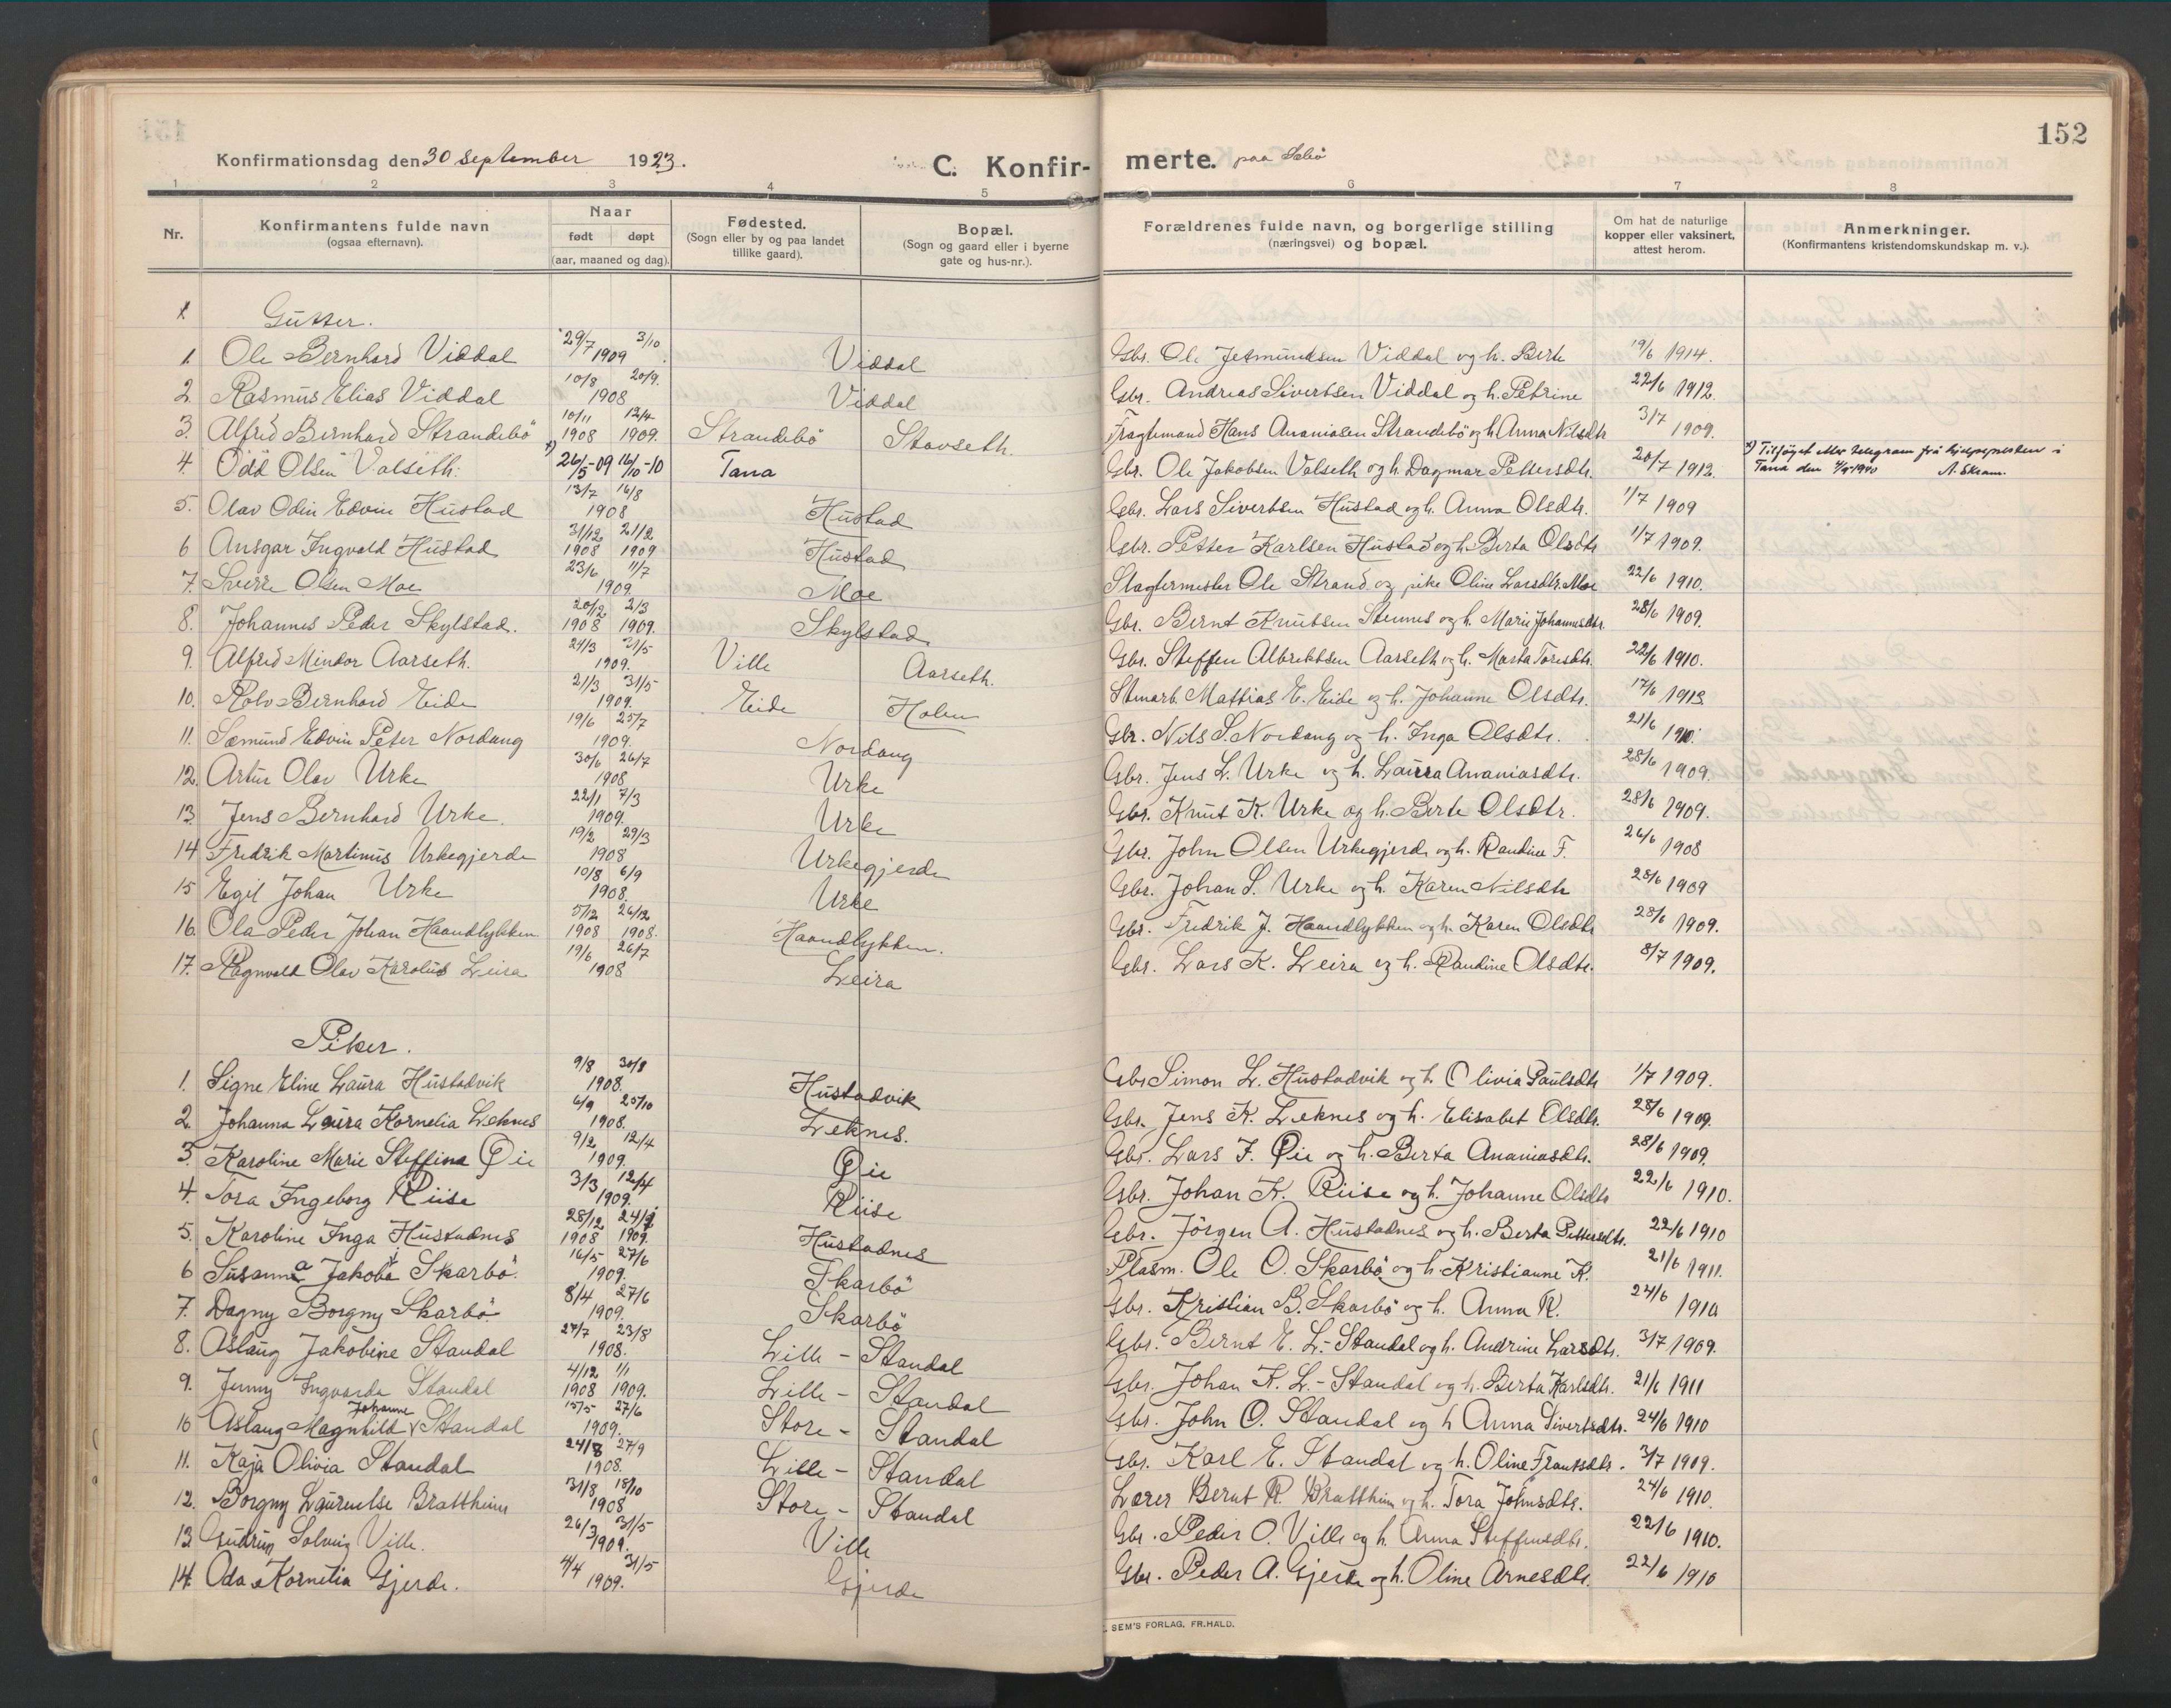 152
Konfirmationsdag den 30 September 1923.
C. Konfir-merte. paa Sæbø
1 2 3 4 5 6 7 8
Nr.
Konfirmantens fulde navn
(ogsaa efternavn).
Naar
født døpt
(aar, maaned og dag).
Fødested.
(Sogn eller by og paa landet
tillike gaard).
Bopæl.
(Sogn og gaard eller i byerne
gate og hus-nr.).
Forældrenes fulde navn, og borgerlige stilling
(næringsvei) og bopæl.
Om hat de naturlige
kopper eller vaksinert,
attest herom.
Anmerkninger.
(Konfirmantens kristendomskundskap m. v.).
Gutter.
1. Ole Bernhard Viddal 29/7 3/10 1909 Viddal Gbr. Ole Jetmundsen Viddal og h. Berte 19/6 1914.
2. Rasmus Elias Viddal 10/8 20/9. 1908 Viddal Gbr. Andreas Sivertsen Viddal og h. Petrine 22/6 1912.
3. Alfred Bernhard Strandebö 10/11 1908 12/4 1909. Strandebö Stavseth. Fragtemand Hans Ananiasen Strandebö og h. Anna Nilsdtr 3/7 1909.
4. Odd Olsen Valseth. x) 26/5-09 16/10-10 Tana Gbr. Ole Jakobsen Valseth og h. Dagmar Pettersdtr. 20/7 1912. x) Tilføyet etter telegram frå hjelpepresten i
Tana den 4/9 1940
5. Olav Odin Edvin Hustad 13/7 16/8 1908 Hustad Gbr. Lars Sivertsen Hustad og h. Anna Olsdtr. 1/7 1909
6 Ansgar Ingvald Hustad 31/12 1908 21/2 1909 Hustad Gbr. Petter Karlsen Hustad og h. Berta Olsdtr 1/7 1909.
7. Sverre Olsen Moe 23/6 11/7 1909. Moe Slagtermester Ole Strand og pike Oline Larsdtr. Moe 22/6 1910.
8. Johannes Peder Skylstad. 20/12 1908 2/3 1909. Skylstad Gbr. Bernt Knutsen Stennes og h. Marie Johannesdtr. 28/6 1909.
9. Alfred Mindor Aarseth. 24/3 31/5 1909. Ville Aarseth. Gbr. Steffen Albrektsen Aarseth og h. Marta Toresdtr. 22/6 1910.
10. Rolv Bernhard Eide 21/3 31/5 1909. Eide Holen Stenarb. Mattias E. Eide og h. Johanne Olsdtr. 17/6 1913.
11. Sæmund Edvin Peter Nordang 19/6 25/7 1909. Nordang Gbr. Nils S. Nordang og h. Inga Olsdtr. 21/6 1910.
12. Artur Olav Urke 30/6 26/7 1908 Urke Gbr. Jens L. Urke og h. Laura Ananiasdtr. 28/6 1909.
13. Jens Bernhard Urke. 22/1 7/3 1909. Urke Gbr. Knut K. Urke og h. Berte Olsdtr. 28/6 1909.
14 Fredrik Martinus Urkegjerde 19/2 29/3 1908 Urkegjerde Gbr. John Olsen Urkegjerde og h. Randine F. 26/6 1908
15 Egil Johan Urke 10/8 6/9 1908. Urke Gbr. Johan S. Urke og h. Karen Nilsdtr 28/6 1909
16. Ola Peder Johan Haandlykken 5/12 1908 26/12 1908. Haandlykken. Gbr. Fredrik J. Haandlykken og h. Karen Olsdtr 28/6 1909.
17. Ragnvald Olav Karolus Leira 19/6 26/7 1908 Leira Gbr. Lars K. Leira og h. Randine Olsdtr. 8/7 1909.
Piker.
1. Signe Eline Laura Hustadvik 9/8 30/8 1908. Hustadvik Gbr. Simon L. Hustadvik og h. Olivia Paulsdtr 1/7 1909.
2. Johanna Laura Kornelia Leknes 6/9 25/10 1908. Leknes. Gbr. Jens K. Leknes og h. Elisabet Olsdtr. 28/6 1909.
3. Karoline Marie Steffina Øie 9/2 12/4 1909. Øie Gbr. Lars J. Øie og h. Berta Ananiasdtr. 28/6 1909.
4. Tora Ingeborg Riise 3/3 12/4 1909. Riise Gbr. Johan K. Riise og h. Johanne Olsdtr 22/6 1910.
5. Karoline Inga Hustadnes 28/12 1908 24/1 1909. Hustadnes Gbr. Jörgen A. Hustadnes og h. Berta Pettersdtr. 22/6 1910
6 Susanna Jakoba Skarbö. 16/5 27/6 1909. Skarbö Plasm. Ole O. Skarbö og h. Kristianne K. 21/6 1911.
7. Dagny Borgny Skarbö. 8/4 27/6 1909. Skarbö Gbr. Kristian B. Skarbö og h. Anna K. 24/6 1910
8. Aslaug Jakobine Standal 27/7 23/8 1908. Lille - Standal Gbr. Bernt E. L.- Standal og h. Andrine Larsdtr. 3/7 1909.
9. Jenny Ingvarda Standal 4/12 1908 1/1 1909. Lille - Standal Gbr. Johan K. L.- Standal og h. Berta Karlsdtr. 21/6 1911
10 Aslaug Magnhild Johanne Standal 15/5 27/6 1909. Store - Standal Gbr. John O. Standal og h Anna Sivertsdtr. 24/6 1910
11. Kaja Olivia Standal 24/8 27/9 1908. Lille - Standal Gbr. Karl E. Standal og h. Oline Frantsdtr. 3/7 1909.
12. Borgny Laurentse Brattheim 31/8 18/10 1908 Store - Standal Lærer Bernt R. Brattheim og h. Tora Johnsdtr. 24/6 1910.
13 Gudrun Solveig Ville. 26/3 31/5 1909. Ville Gbr. Peder O. Ville og h. Anna Steffensdtr. 22/6 1910.
14. Oda Kornelia Gjerde. 4/4 31/5 1909. Gjerde Gbr. Peder A. Gjerde og h. Oline Arnesdtr. 22/6 1910
SEM'S FORLAG, FR.HALD.